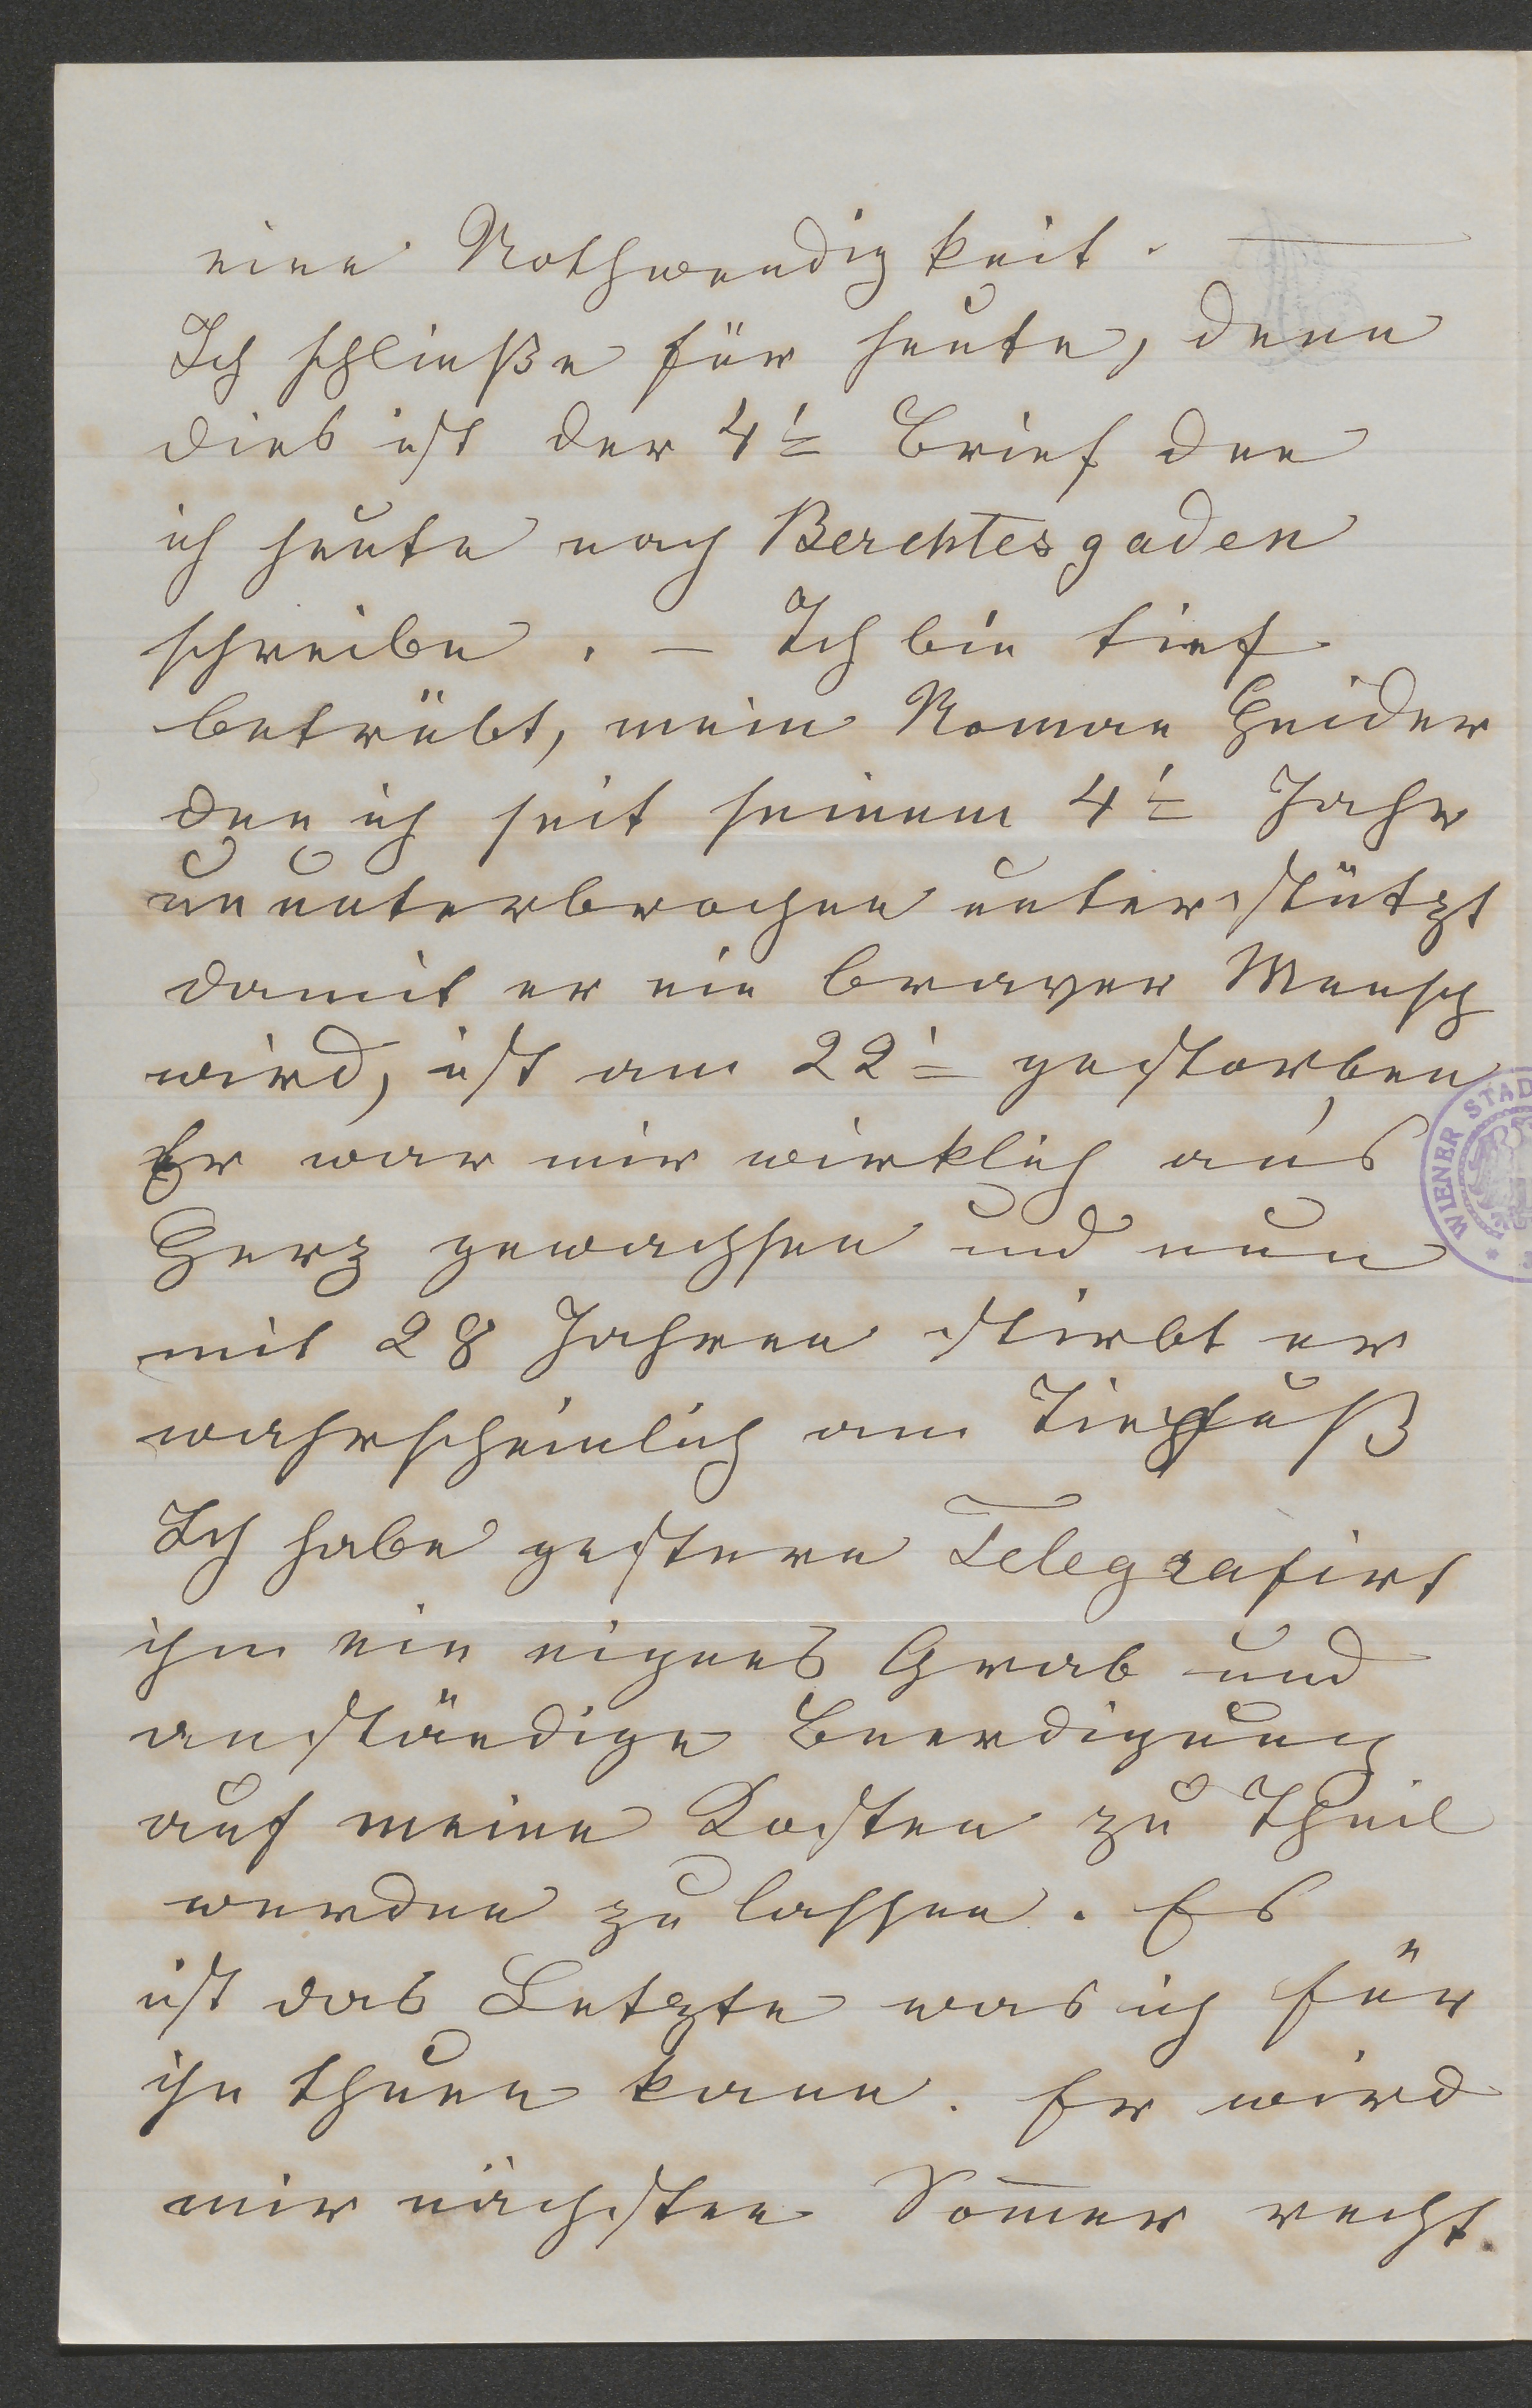 eine Nothwendigkeit. —
Ich schließe für heute, denn
dies ist der 4te Brief den
ich heute nach Berchtesgaden
schreibe. – Ich bin tief
betrübt, mein Roman
den ich seit seinem 4t Jahr
ununterbrochen unterstützt
damit er ein braver Mensch
wird, ist am 22t gestorben
Er war mir wirklich ans
Herz gewachsen und nun
mit 28 Jahren stirbt er
wahrscheinlich am
Ich habe gestern Telegrafirt
ihm ein eignes Grab und
anständige Beerdigung
auf meine Kosten zu Theil
werden zu lassen. Es
ist das Letzte was ich für
ihn thuen kann. Er wird
mir nächsten Som̅er recht
WIENER STAD